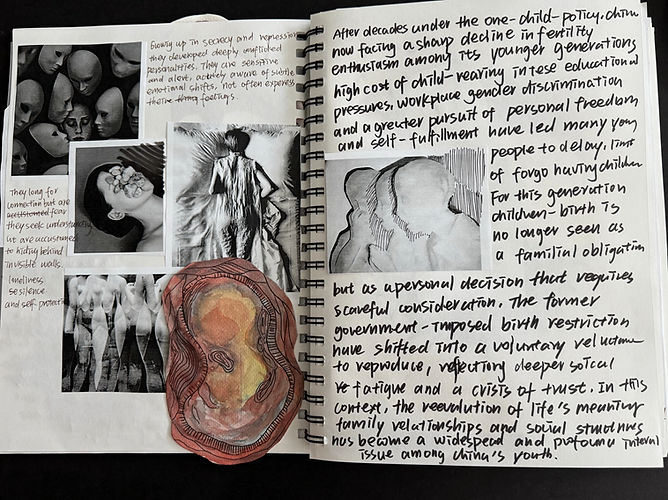 Growing up in secrecy and repression
they developed deeply conflicted
personalities. They are sensitive
and alert, acutely aware of subtle
emotional shifts, not often express
their feelings.
They long for
connection but are
accustomed fear
they seek understanding
ut are accustomed
to hiding behind
invisible walls.
loneliness,
and self-protection
After decades under the one-child-policy, china
now facing a sharp decline in fertility
enthusiasm among its younger generations
high cost of child-rearing intese educational
pressures, workplace gender discrimination
and a greater pursuit of personal freedom
and self-fulfillment have led many young
people to delay, limit
of forgo having children
For this generation
children-birth is
no longer seen as
a familial obligation
but as a personal decision that requires
scareful consideration. The former
government-imposed birth restriction
have shifted into a voluntary reluctance
to reproduce, reflecting deeper soical
fatigue and a crisis of trust. In this
context, the reevalution of life's meaning
family relationships and social structures
has become a widespead and profound internal
issue among china's youth.